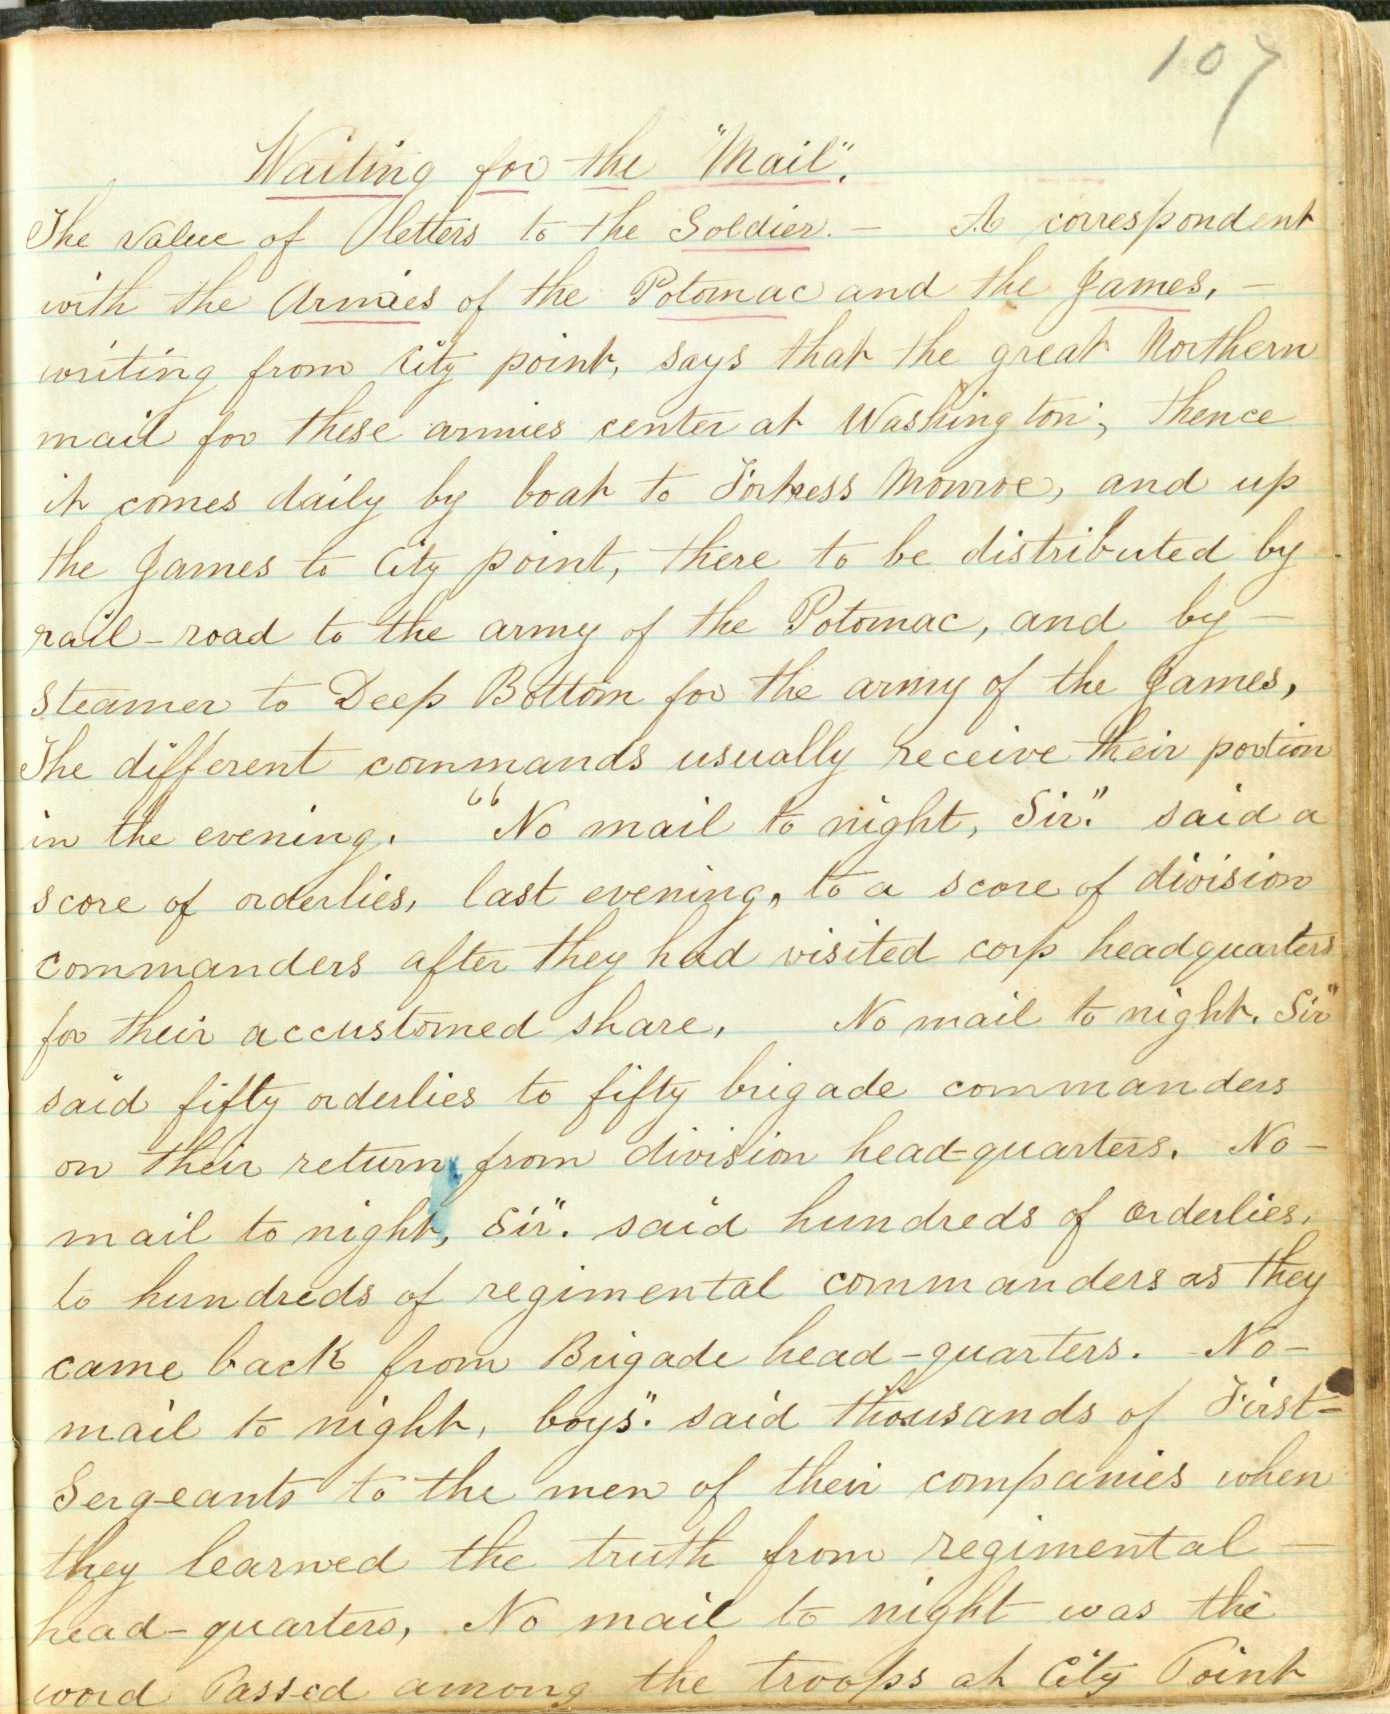 107
Waiting for the "Mail".
The value of letters to the Soldier. — A correspondent
with the Armies of the Potomac and the James, —
writing from City point, says that the great Northern
mail for these armies center at Washington; thence
it comes daily by boat to Fortress Monroe, and up
the James to City point, there to be distributed by
rail-road to the army of the Potomac, and by —
steamer to Deep Bottom for the army of the James,
The different commands usually receive their portion
in the evening. "No mail to night, Sir." said a
score of orderlies, last evening, to a score of division
commanders after they had visited corp headquarters
for their accustomed share, No mail to night. Sir"
said fifty orderlies to fifty brigade commanders
on their return from division head-quarters. No —
mail to night, Sir". said hundreds of orderlies,
to hundreds of regimental commanders as they
came back from Brigade head-quarters. No —
mail to night, boys". said thousands of First=
Sergeants to the men of their companies when
they learned the truth from regimental —
head-quarters, No mail to night was the
word Passed among the troops at City Point